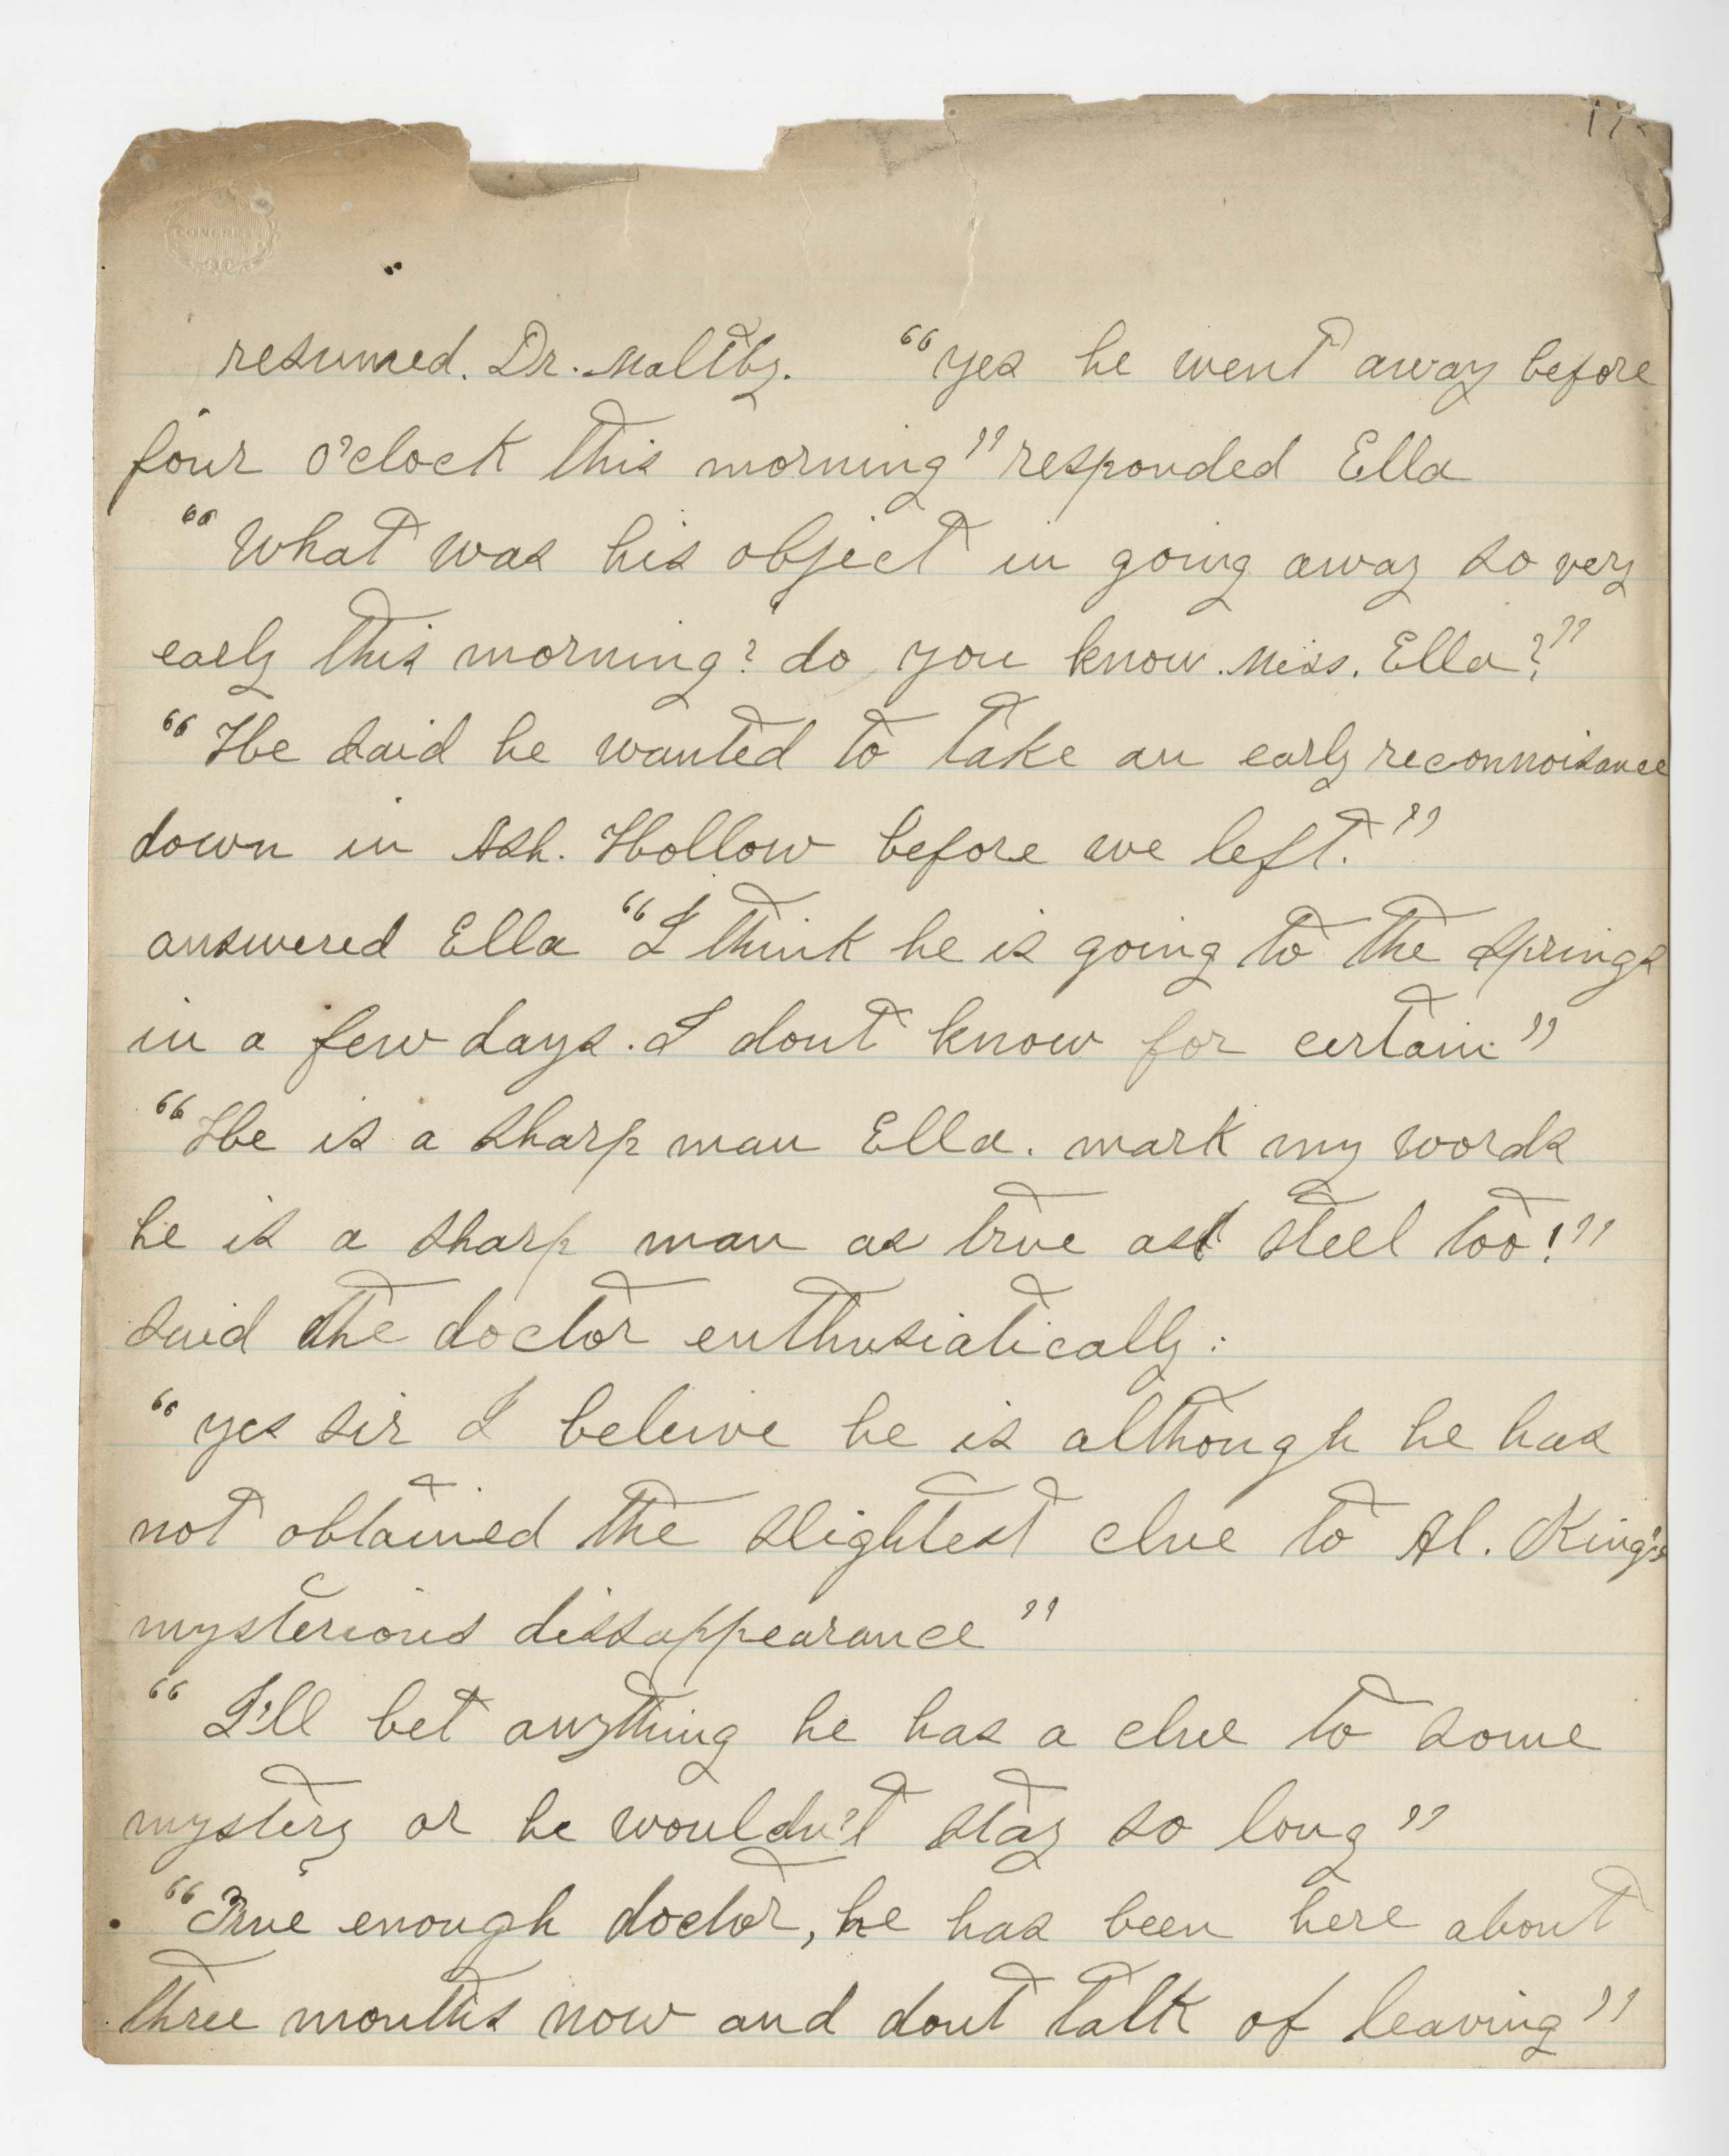 CONGRESS
resumed. Dr. Maltby. "yes he went away before
four o'clock this morning" responded Ella
"What was his object in going away so very
early this morning? do you know. Miss. Ella?"
"He said he wanted to take an early reconnoisance
down in Ash. Hollow before we left."
answered Ella "I think he is going to the springs
in a few days. I dont know for certain"
"He is a sharp man Ella. mark my words
he is a sharp man as true as steel too!"
said the doctor enthusiatically:
"yes sir I beleive he is although he has
not obtained the slightest clue to Al. King's
mysterious dissappearance"
"I'll bet anything he has a clue to some
mystery or he wouldn't stay so long"
"True enough doctor, he has been here about
three months now and dont talk of leaving"